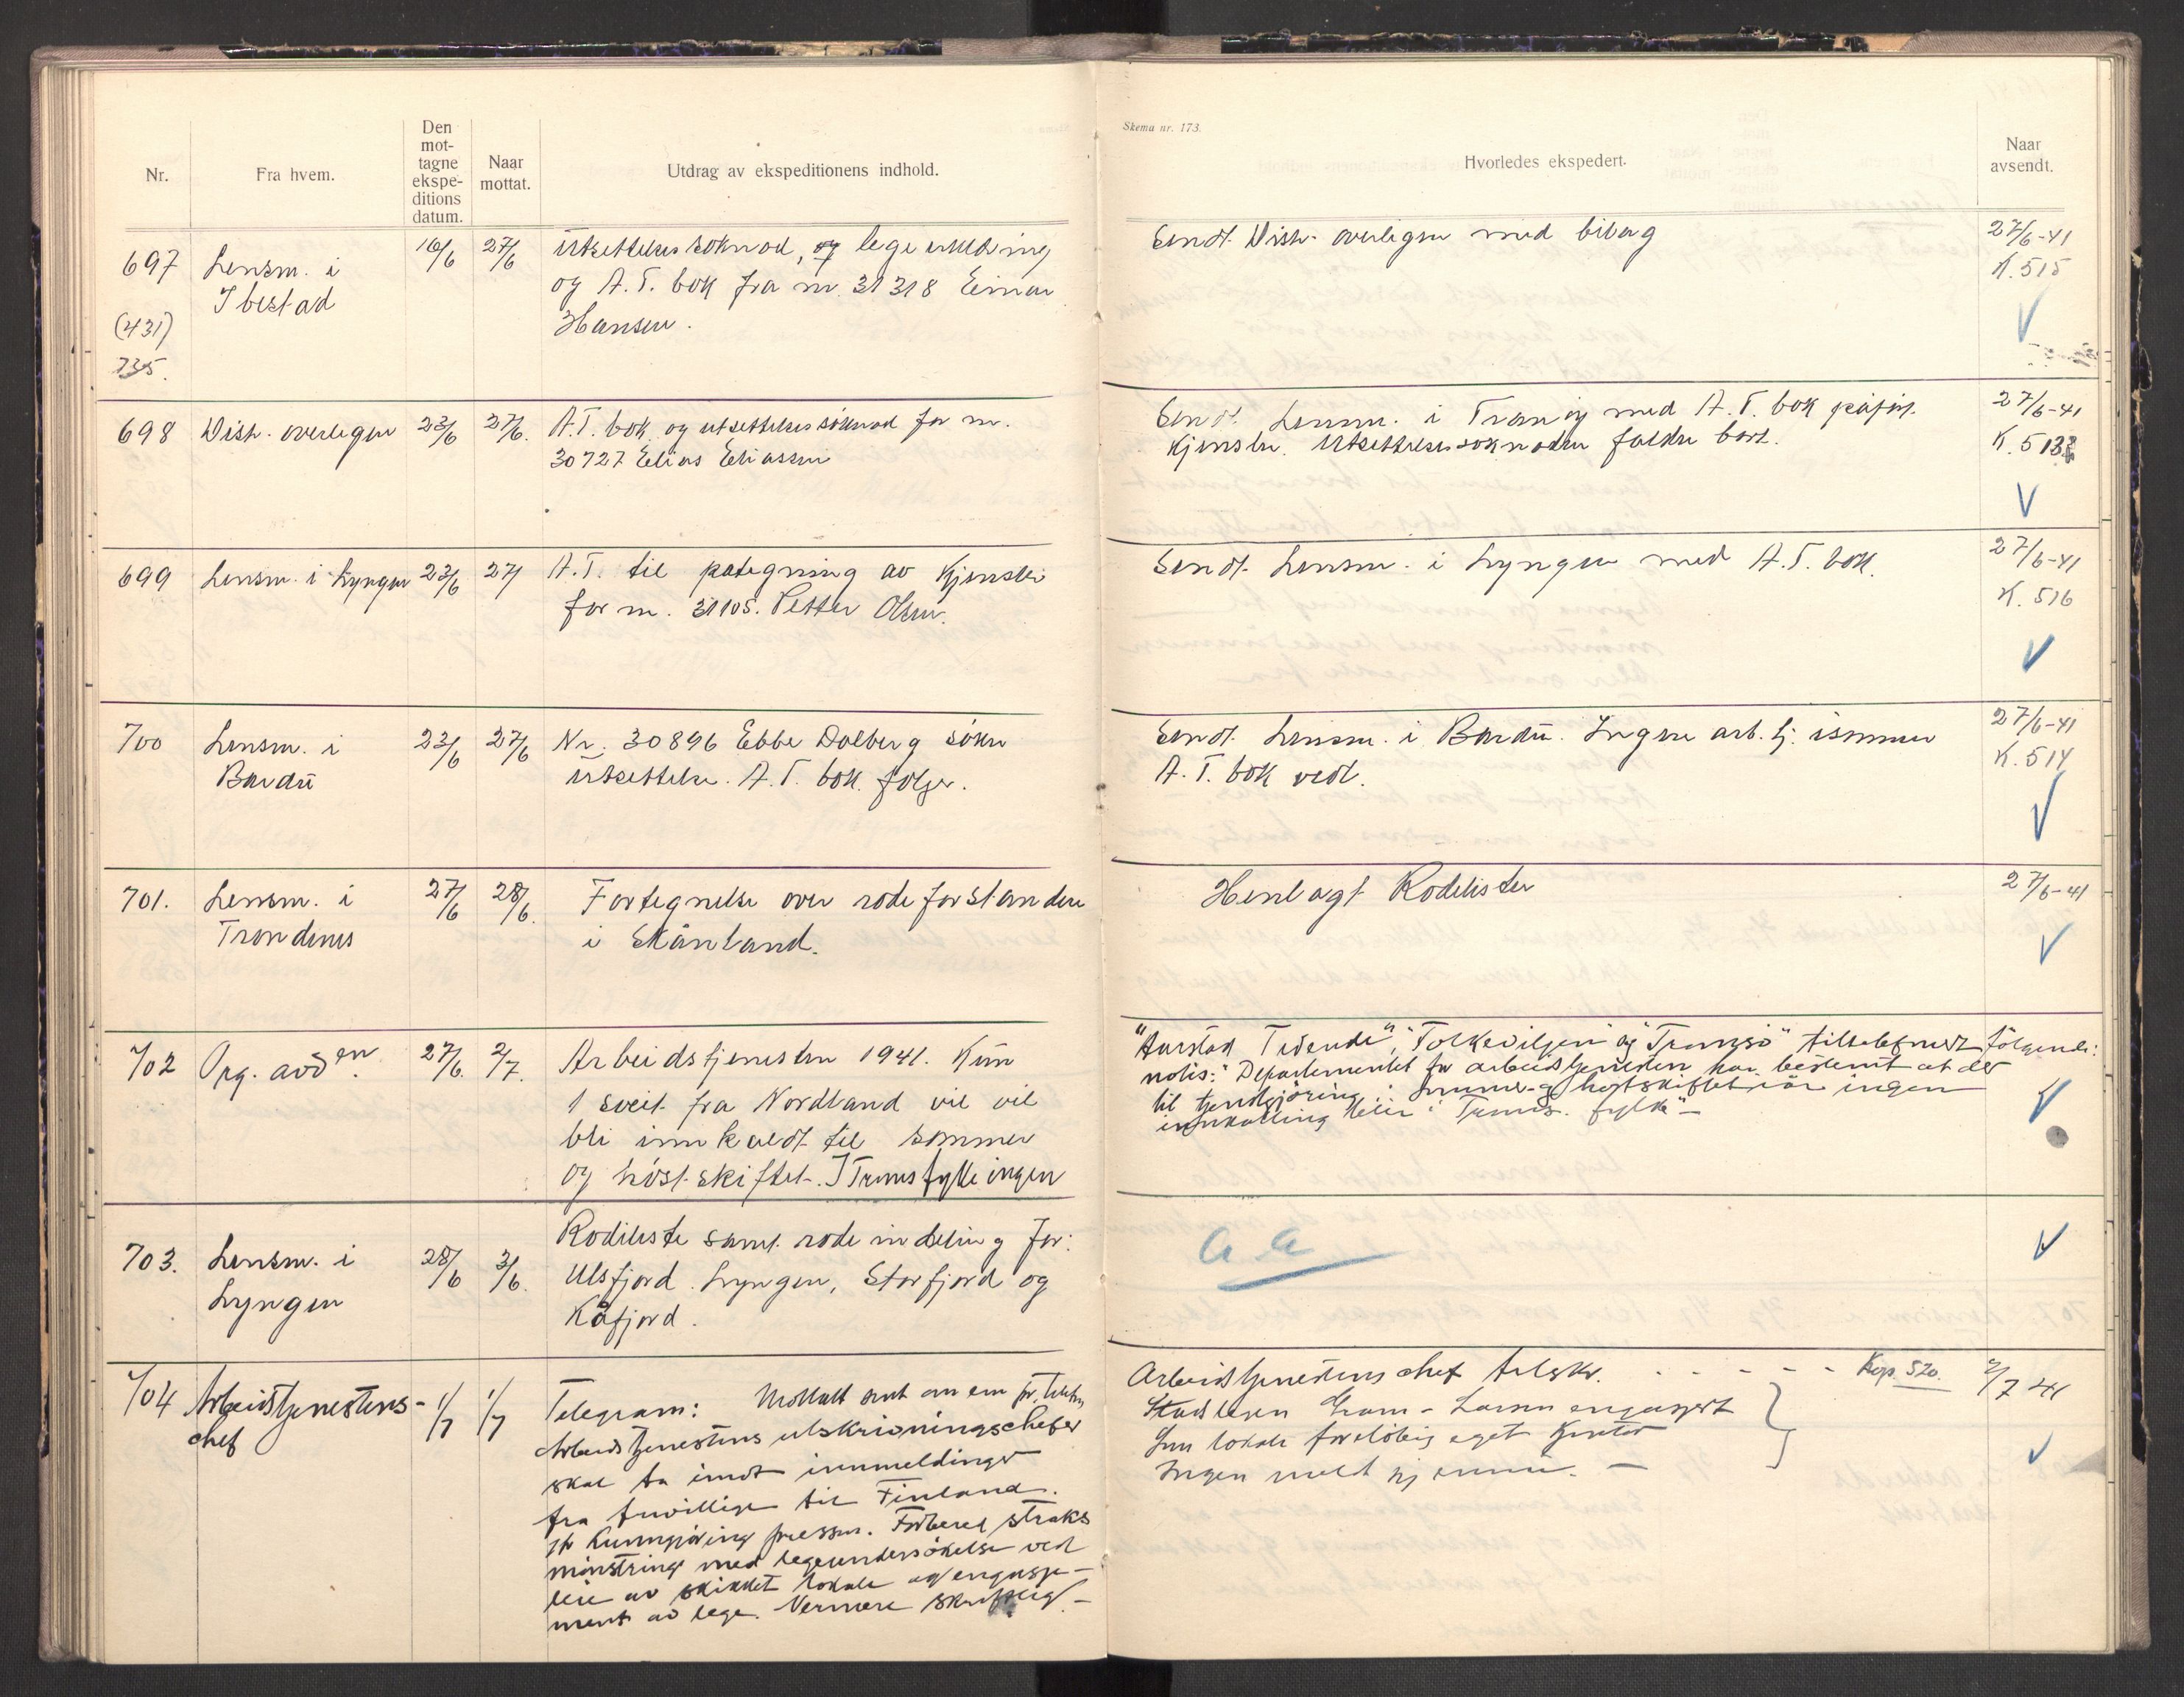 Nr.
Fra hvem.
Den
mot-
tagne
ekspe-
ditions
datum.
Naar
mottat.
Utdrag av ekspeditionens indhold.
Skema nr. 173.
Hvorledes ekspedert.
Naar
avsendt.
697
(431)
735.
Lensm. i
Ibestad
16/6
27/6
Utsettelsessöknad, og legemelding
og A.T. bok fra nr. 31318 Einar
Hansen.
Sendt Distr. overlegen med bilag
27/6-41
K. 515
698
Distr. overlegen
23/6
27/6.
A.T. bok og utsettelsessöknad for nr.
30727 Elias Eliassen
Sendt Lensm. i Tranöy med A.T. bok påfört
Kjennelse. Utsettelsessöknaden faldne bort.
27/6-41
K. 513
699
Lensm. i Lyngen
23/6
27/
A.T. til pategning av Kjennelse
for nr. 31105. Petter Olsen.
Sendt Lensm. i Lyngen med A.T. bok.
27/6-41
K. 516
700
Lensm. i
Bardu
23/6
27/6
Nr. 30896 Ebbe Dalberg söker
Utsettelse. A.T. bok. fölger.
Sendt Lensm. i Bardu. Ingen arb. tj. isommer
A.T. bok vedl.
27/6-41
K. 514
701.
Lensm. i
Trondenes
27/6
28/6.
Fortegnelse over rodeforstandere
i Skånland.
Henlagt Rodelister
27/6-41
702
Org. avd en.
27/6.
2/7.
Arbeidstjenesten 1941. Kun
1 sveit fra Nordland vil vil
bli innkaldt til sommer
og höst skiftet. I Troms fylke ingen
"Harstad Tidende", "Folkeviljen" og "Tromsö" tilstillet følgende
notis: "Departementet for arbeidstjenesten har bestemt at der
til tjenstgjöring i sommer og höstskiftet i år ingen
innkalling blir i Troms. fylke"-
703.
Lensm. i
Lyngen
28/6
3/6.
Rodeliste samt rode inndeling for:
Ulsfjord. Lyngen, Storfjord og
Kåfjord.
a a
704
Arbeidstjenestens-
chef
1/7
1/7
Telegram: Mottatt pr. telefon
Arbeidstjenestens utskrivningschefer
skal ta imot innmeldinger
fra frivillige til Finland.
Kunngjöring pressen. Forbered straks
mönstring med legeundersökelse ved
leie av skikket lokale og engasje-
ment av lege. Nermere skriftlig.-
Arbeidstjenestens chef tilskr. - - - - - Kop. 520.
Stadslegen Gram-Larsen engasjert
Som lokale foreløbig eget kontor
Ingen meldt sig ennu. -
2/7 41